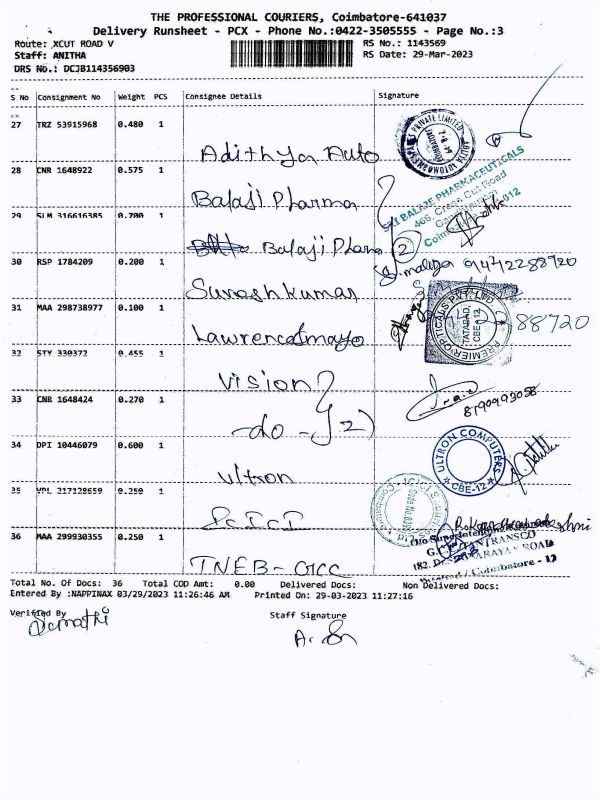 THE PROFESSIONAL COURIERS, Coimbatore-641037
Delivery Runsheet - PCX - Phone No.:0422-3505555 - Page No.:3
Route: XCUT ROAD V RS No.: 1143569
Staff: ANITHA RS Date: 29-Mar-2023
DRS No.: DCJB114356903
S No Consignment No Weight PCS Consignee Details Signature
27 TRZ 53915968 0.480 1
Adithya Auto
PRIVATE LIMITED
28 CNR 1648922 0.575 1
Balaji Pharma
SRI BALAJE PHARMACEUTICALS
466, Cross Cut Road
29 SLM 316616385 0.700 1
Balaji Pharma 2
30 RSP 1784209 0.200 1
Sureshkumar
31 MAA 298738977 0.100 1
Lawrence&mayo
PREMIER OPTICALS PVT. LTD.
TATABAD,
CBE-12
88720
32 STY 330372 0.455 1
Vision
33 CNR 1648424 0.270 1
-do- 2)
8190993058
34 DPI 10446079 0.600 1
Ultron
ULTRON COMPUTERS
CBE-12
35 VPL 217128659 0.250 1
ICICI
36 MAA 299930355 0.250 1
TNEB-GCC
TANTRANSCO
ROAD
Coimbatore - 12
Total No. Of Docs: 36 Total COD Amt: 0.00 Delivered Docs: Non Delivered Docs:
Entered By :NAPPINAX 03/29/2023 11:26:46 AM Printed On: 29-03-2023 11:27:16
Verified By Staff Signature